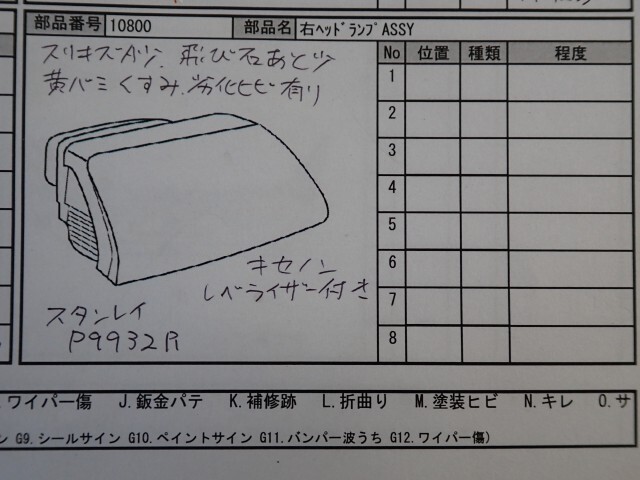 部品番号 10800 部品名 右ヘッドランプASSY
スリキズ大ツ、飛び石あとツ
黄バミくすみ、劣化ヒビ有り
No 位置 種類 程度
1
2
3
4
5
6
7
8
キセノン
レベライザー付き
スタンレイ
P9932R
ワイパー傷 J.鈑金パテ K.補修跡 L.折曲り M.塗装ヒビ N.キレ O.サ
ン G9.シールサイン G10.ペイントサイン G11.バンパー波うち G12.ワイパー傷)